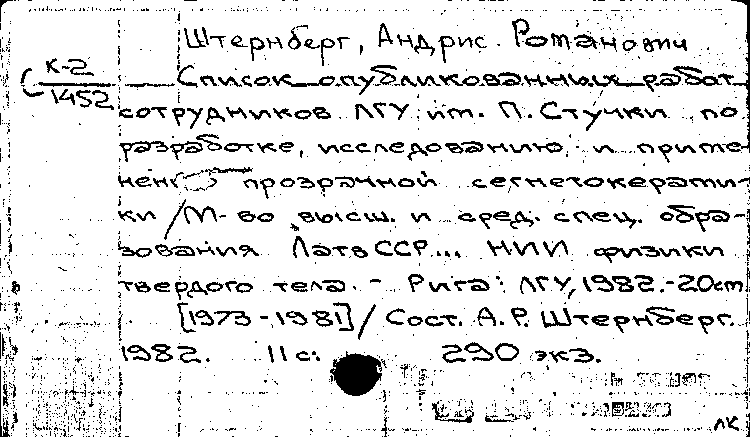 Штернберг, Андрис Романович
С К-2/1452 Список опубликованных работ
сотрудников ЛГУ им. П. Стучки по
разработке, исследованию и приме-
прозрачной сегнетокерами-
ки / М-во высш. и сред. спец. обра-
зования Латв ССР... НИИ физики
твердого тела. - Рига: ЛГУ, 1982. - 20см
[1973 - 1981] / Сост. А. Р. Штернберг.
1982. 11 с: 290 экз.
ЛК